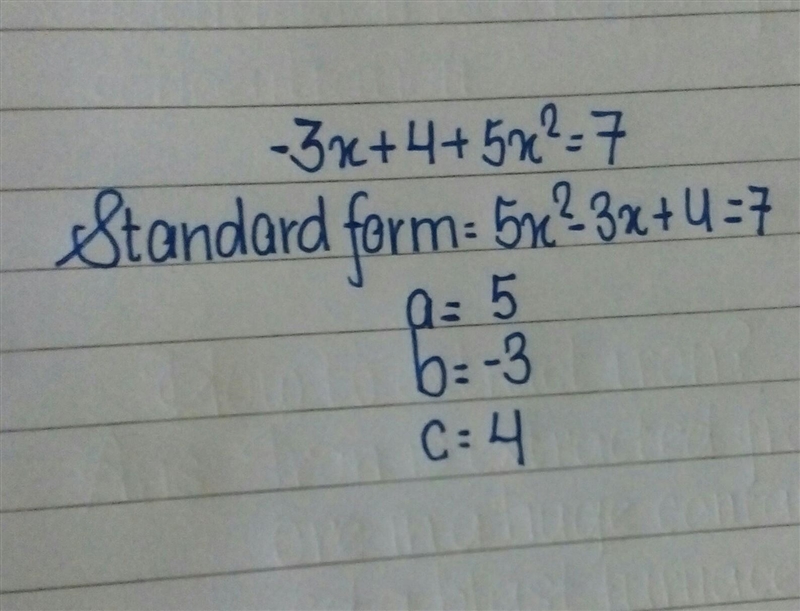 -3x+4+5x²=7
Standard form= 5x²-3x+4=7
a= 5
b=-3
c=4